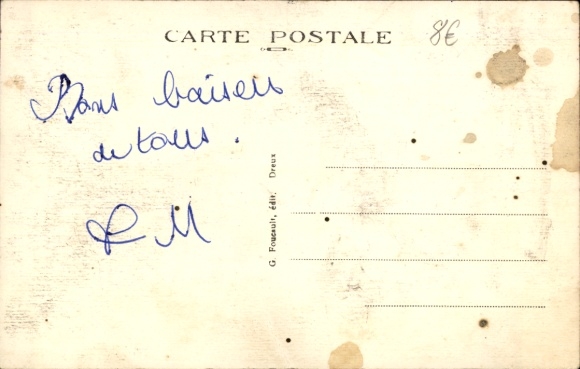 CARTE POSTALE
8€
Bons baisers
de tous.
G. Foucault, édit. Dreux